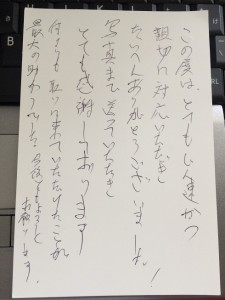 この度は、とてもじん速かつ
親切に対応いただき
たいへんありがとうございました!
写真まで送っていただき
とても感謝しております
何よりも取りに来ていただけたことが
最大の助かりでした。今後ともよろしく
お願いします。